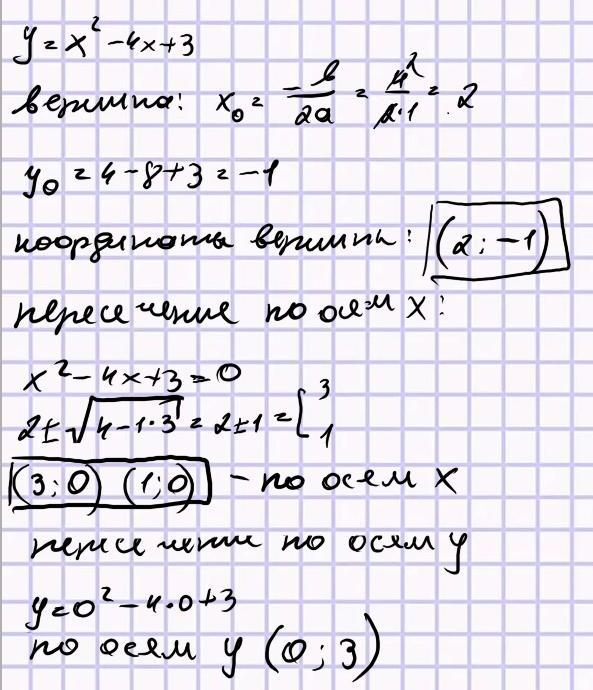 y = x² - 4x + 3
вершина: x₀ = -b/2a = 4/2·1 = 2
y₀ = 4 - 8 + 3 = -1
координаты вершины: (2; -1)
пересечение по осям x:
x² - 4x + 3 = 0
2 ± √4 - 1·3 = 2 ± 1 = [ 3 1
(3; 0) (1; 0) - по осям x
пересечение по осям y
y = 0² - 4·0 + 3
по осям y (0; 3)